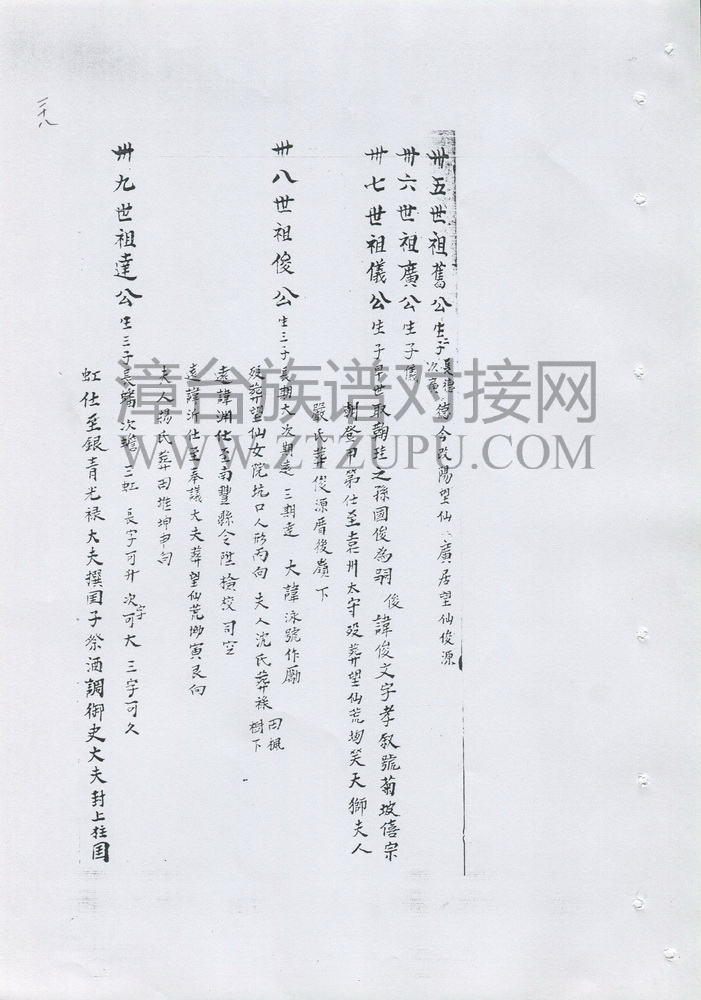 卅五世祖舊公生二子長德次廣 德今改陽望仙 廣居望仙俊源
卅六世祖廣公生子儀
卅七世祖儀公生子早世取鞠珪之孫國俊為嗣 俊 諱俊文字孝叙號菊坡僖宗
朝登甲第仕至袁州太守歿葬望仙荒坳笑天獅夫人
嚴氏葬俊源厝後嶺下
卅八世祖俊公生三子長期大次期遠三期達 大諱泳號作勵
歿葬望仙女院坑口人形丙向 夫人沈氏葬祿田楓樹下
遠諱渊仕至南豐縣令陞撿校司空
達諱沂仕至奉議大夫葬望仙荒坳寅艮向
夫人楊氏葬田堆坤申向
卅九世祖達公生三子長蟠次蟾三虹 長字可升 次字可大 三字可久
虹仕至銀青光禄大夫撰国子祭酒調御史大夫封上柱国
三十八
漳台族谱对接网
WWW.ZTZUPU.COM